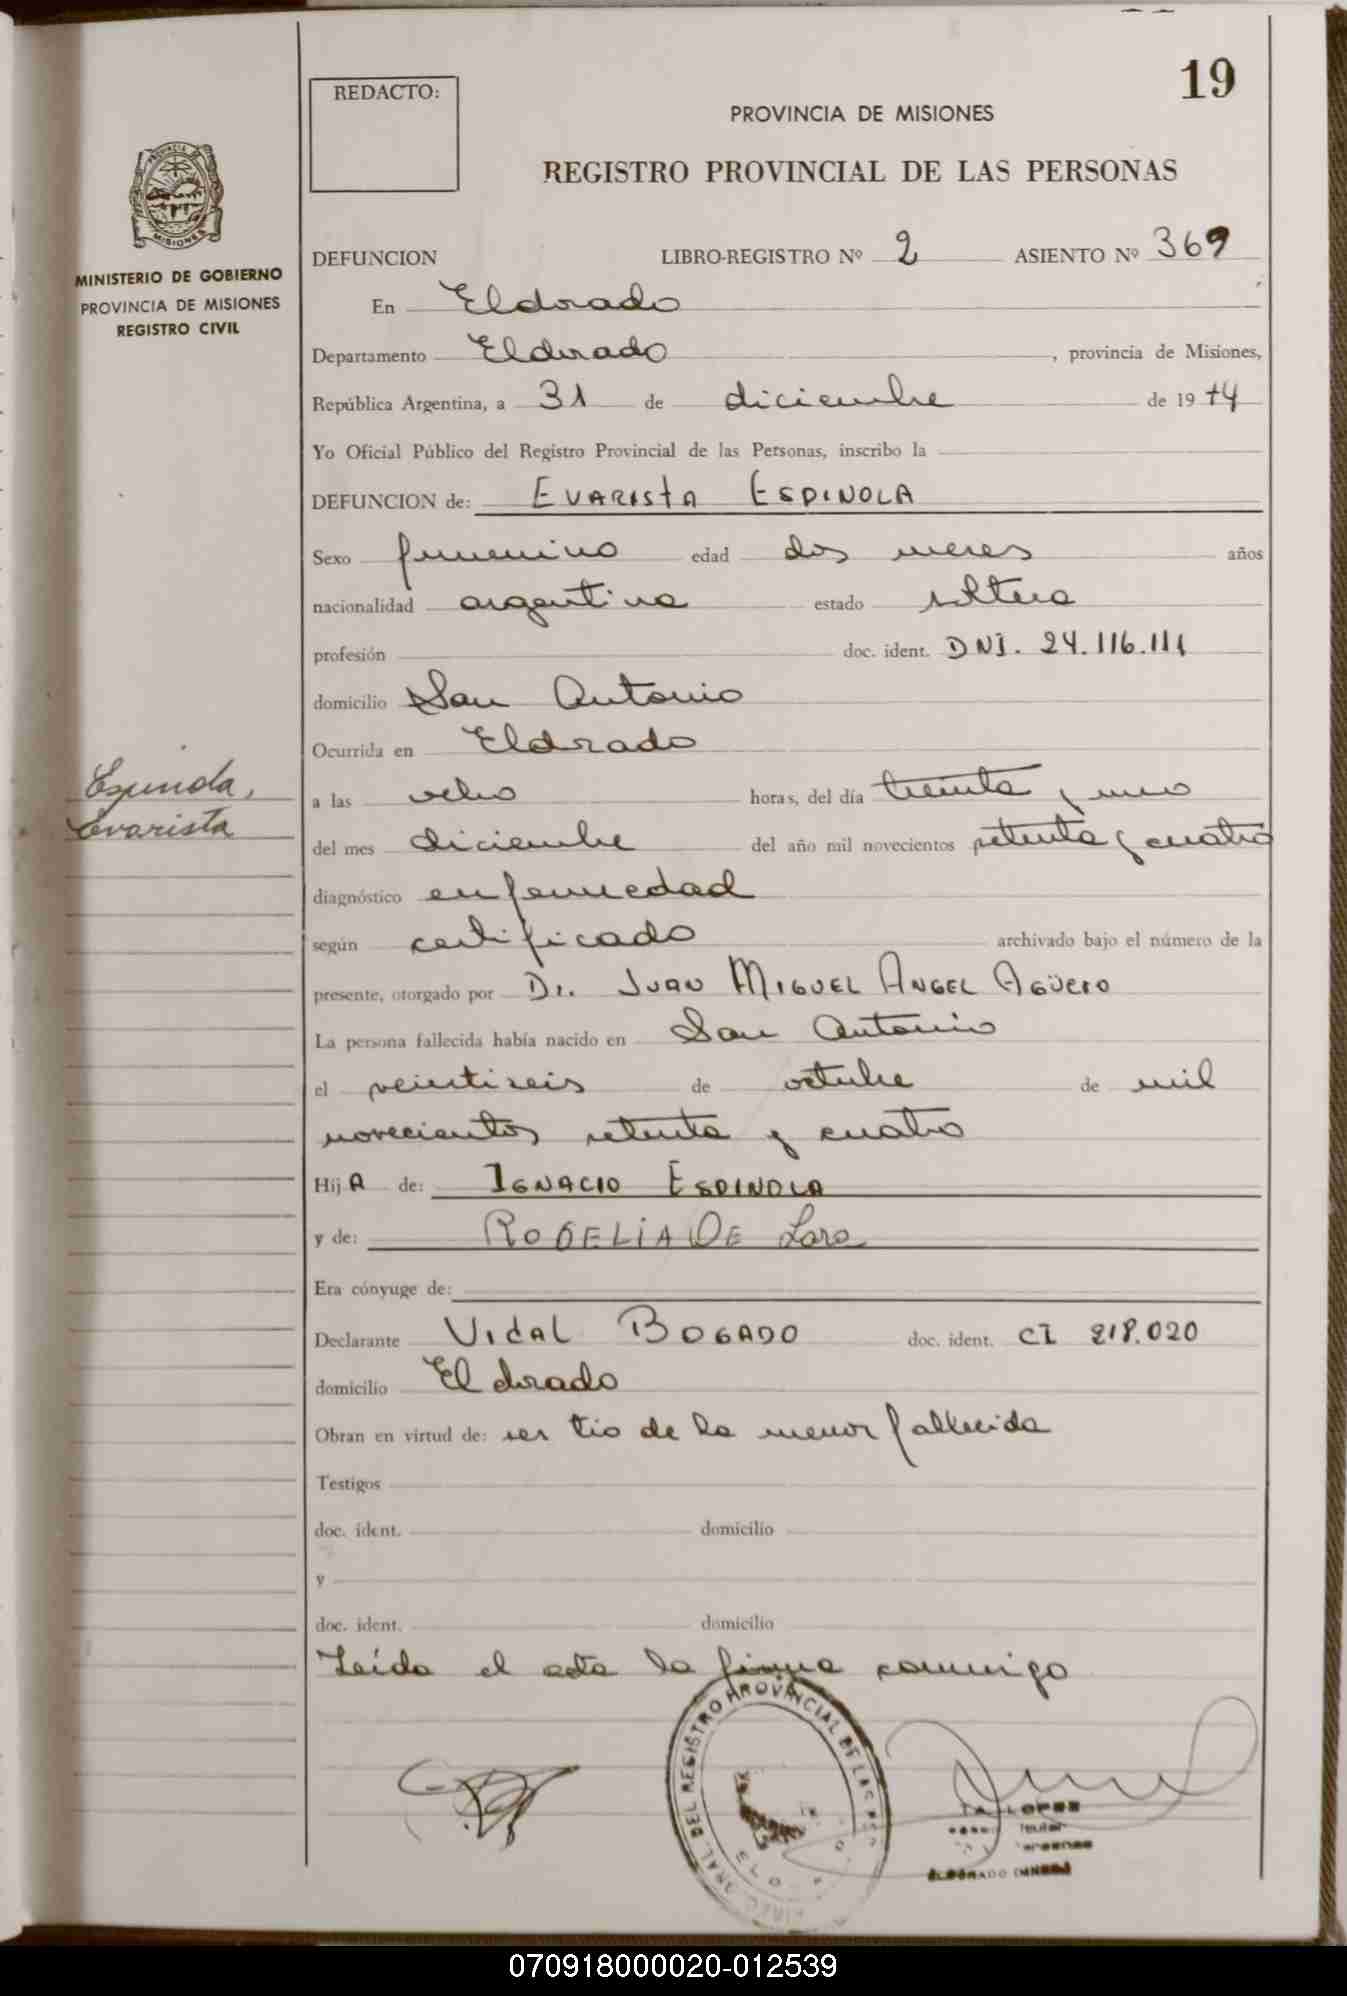 19
REDACTO:
PROVINCIA DE MISIONES
REGISTRO PROVINCIAL DE LAS PERSONAS
MINISTERIO DE GOBIERNO
PROVINCIA DE MISIONES
REGISTRO CIVIL
DEFUNCION LIBRO-REGISTRO Nº 2 ASIENTO Nº 369
En Eldorado
Departamento Eldorado, provincia de Misiones,
República Argentina, a 31 de diciembre de 1974
Yo Oficial Público del Registro Provincial de las Personas, inscribo la
DEFUNCION de: EVARISTA ESPINOLA
Sexo femenino edad dos meses años
nacionalidad argentina estado soltera
profesión doc. ident. DNI. 24.116.111
domicilio San Antonio
Ocurrida en Eldorado
Espinola,
Evarista
a las ocho horas, del día treinta y uno
del mes diciembre del año mil novecientos setenta y cuatro
diagnóstico enfermedad
según certificado archivado bajo el número de la
presente, otorgado por Dr. JUAN MIGUEL ANGEL AGÜERO
La persona fallecida había nacido en San Antonio
el veintiseis de octubre de mil
novecientos setenta y cuatro
HijA de: IGNACIO ESPINOLA
y de: ROGELIA DE Lara
Era cónyuge de:
Declarante VIDAL BOGADO doc. ident. CI 218.020
domicilio Eldorado
Obran en virtud de: ser tio de la menor fallecida
Testigos
doc. ident. domicilio
y
doc. ident. domicilio
Leída el acta la firma conmigo
DEL REGISTRO PROVINCIAL DE LAS
LOPEZ
Titular
ELDORADO
070918000020-012539